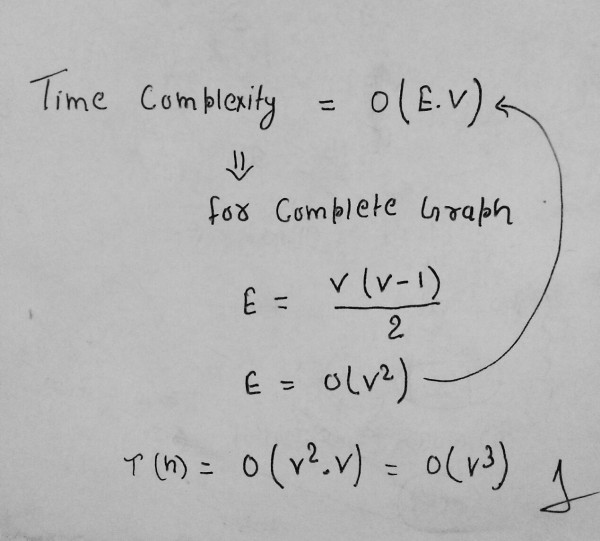 Time Complexity = O(E.V)
⇓
for Complete Graph
E = V(V-1)/2
E = O(V²)
T(n) = O(V².V) = O(V³)